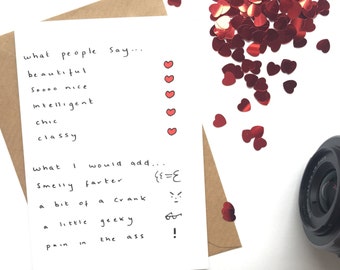 what people say...
beautiful
soooo nice
intelligent
chic
classy
what I would add...
smelly farter
a bit of a crank
a little geeky
pain in the ass !